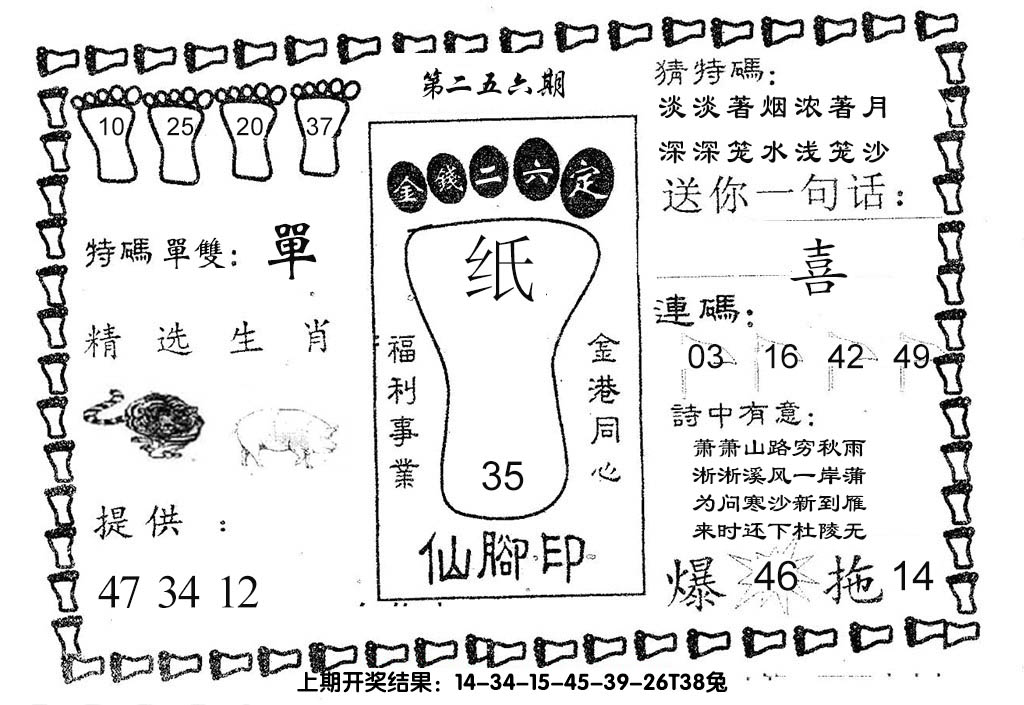 第二五六期
10 25 20 37
特碼單雙：單
精选生肖
提供：
47 34 12
金錢二六定
纸
福利事業
金港同心
35
仙腳印
猜特碼：
淡淡著烟浓著月
深深笼水浅笼沙
送你一句话：
喜
連碼：
03 16 42 49
詩中有意：
萧萧山路穷秋雨
淅淅溪风一岸蒲
为问寒沙新到雁
来时还下杜陵无
爆 46 拖 14
上期开奖结果：14-34-15-45-39-26T38兔